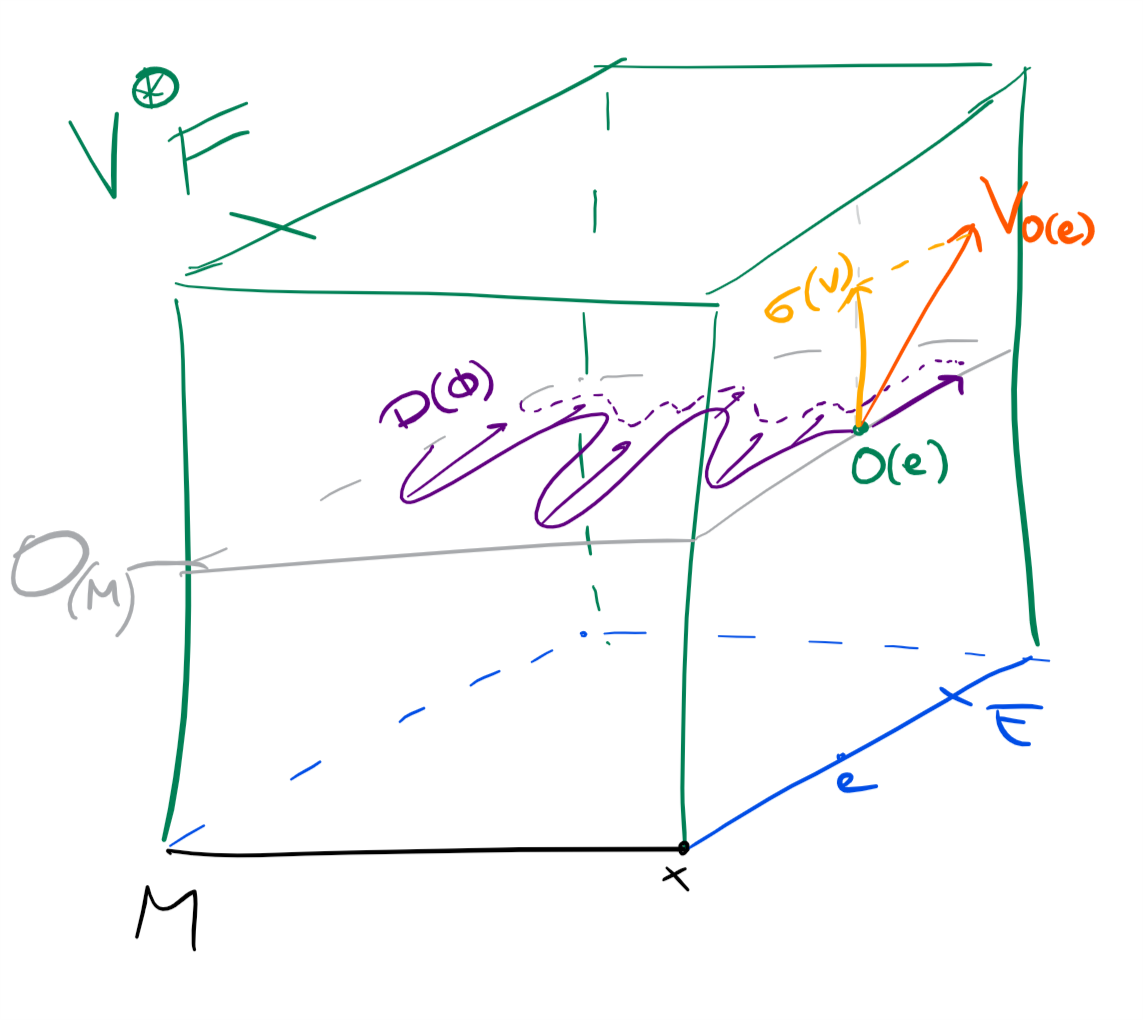 V⊛F
V_O(e)
σ(V)
D(ϕ)
O(e)
O_(M)
E
e
x
M